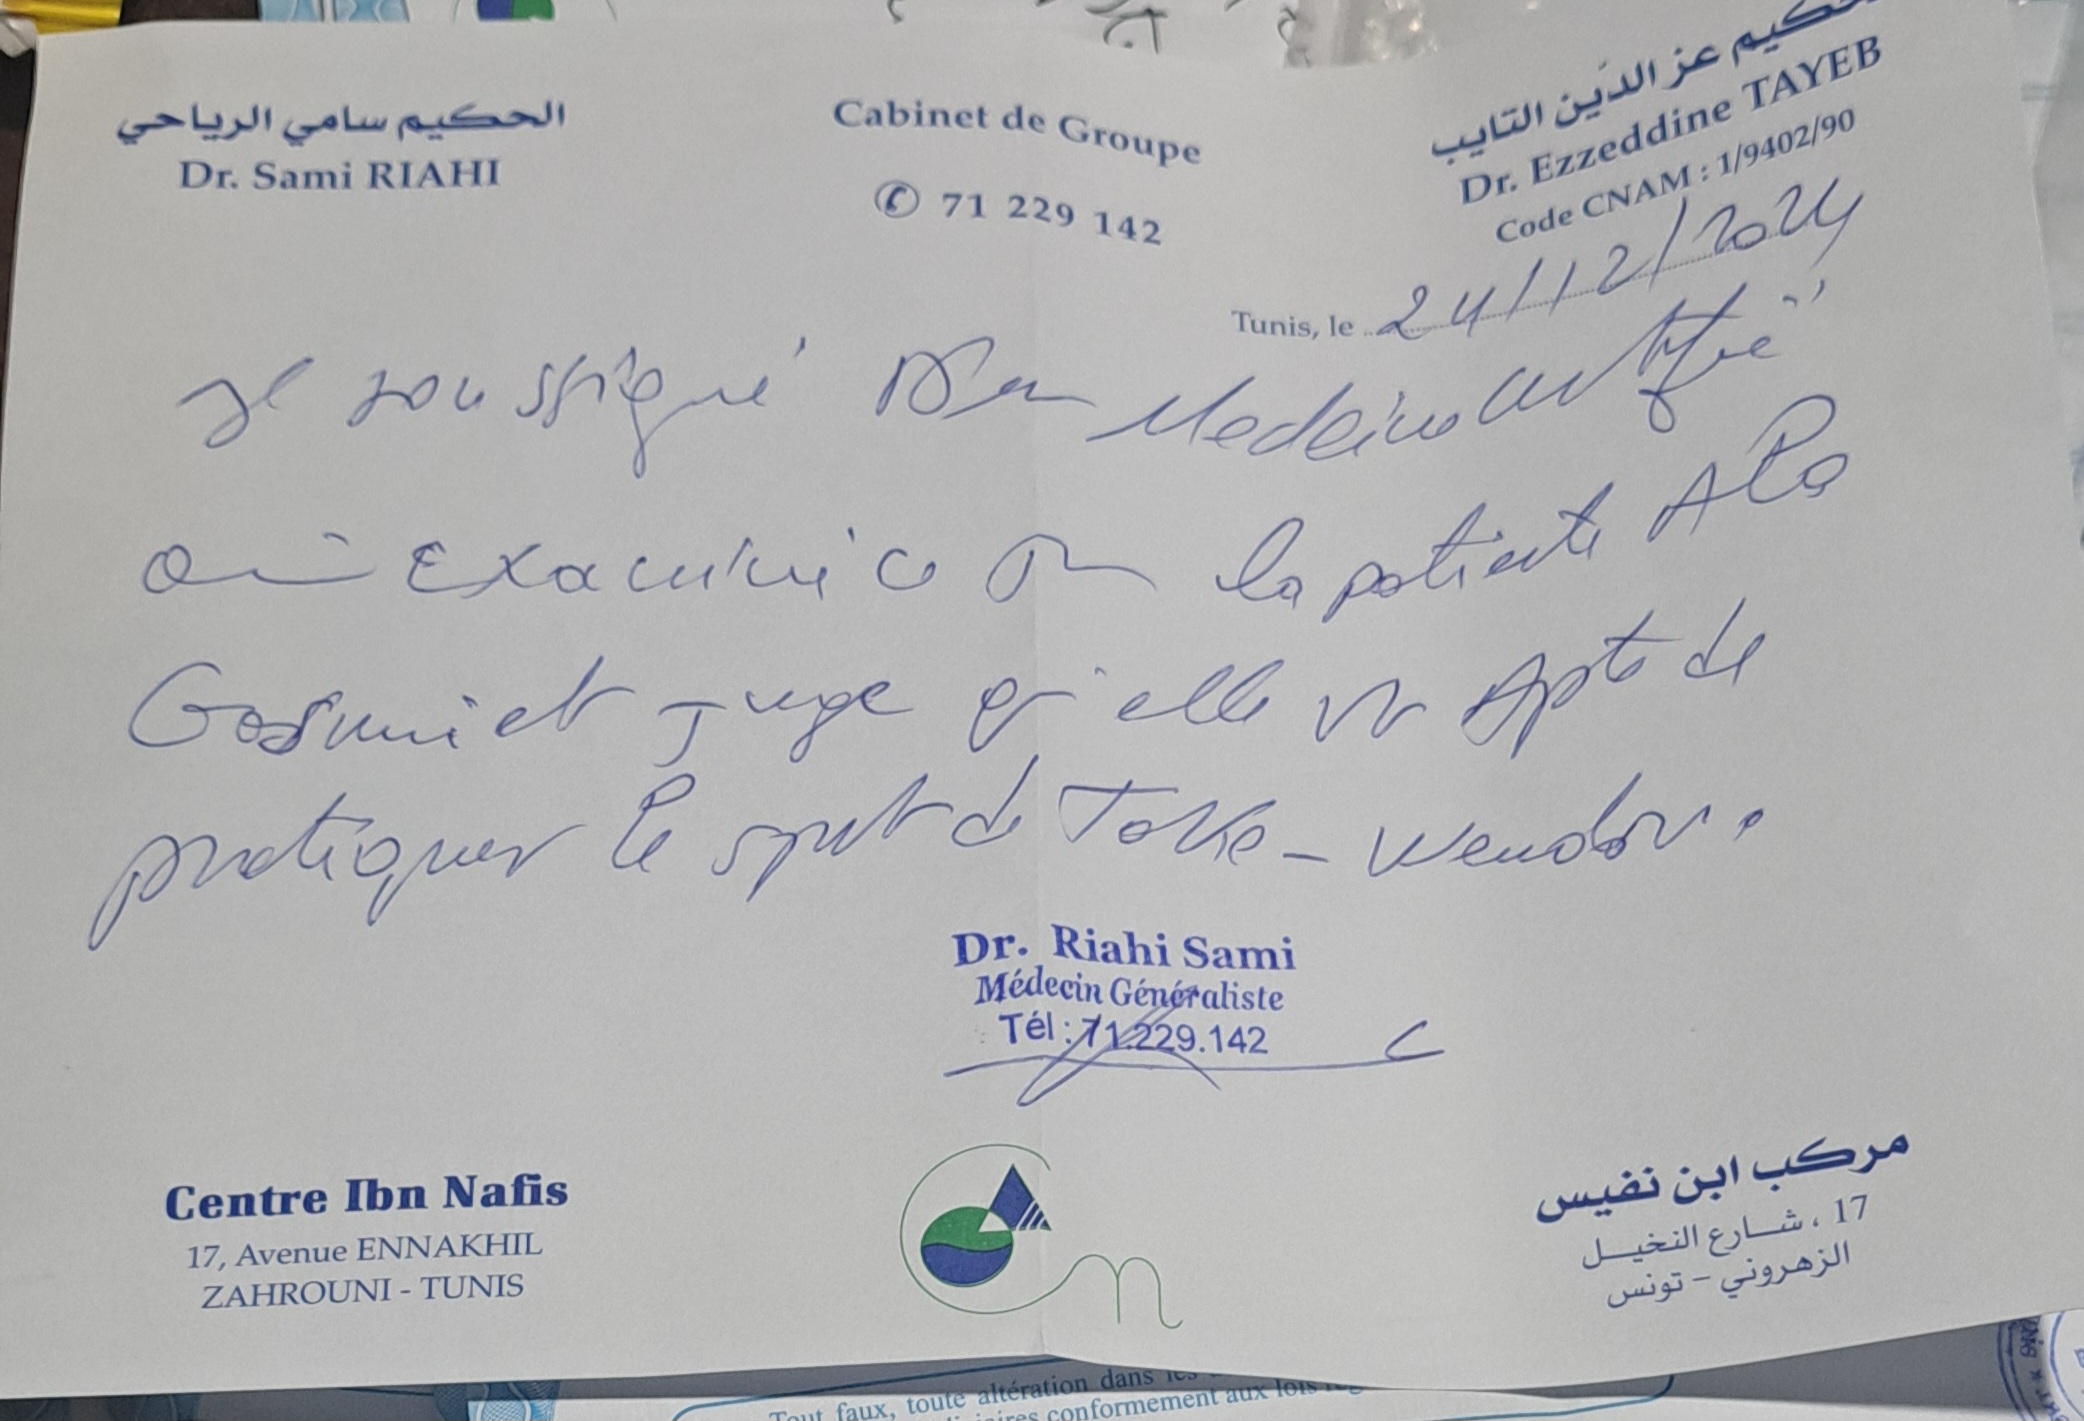 الحكيم سامي الرياحي
Dr. Sami RIAHI
Cabinet de Groupe
✆ 71 229 142
حكيم عز الدّين التايب
Dr. Ezzeddine TAYEB
Code CNAM : 1/9402/90
Tunis, le 24/12/2024
Je soussigné Dr en Medecine certifie
avoir Examiné ce jour la patiente Ala
et juge qu'elle est Apte de
pratiquer le sport de
Dr. Riahi Sami
Médecin Généraliste
Tél : 71.229.142
Centre Ibn Nafis
17, Avenue ENNAKHIL
ZAHROUNI - TUNIS
مركب ابن نفيس
17 ، شارع النخيل
الزهروني - تونس
Tout faux, toute altération dans les
conformement aux lois